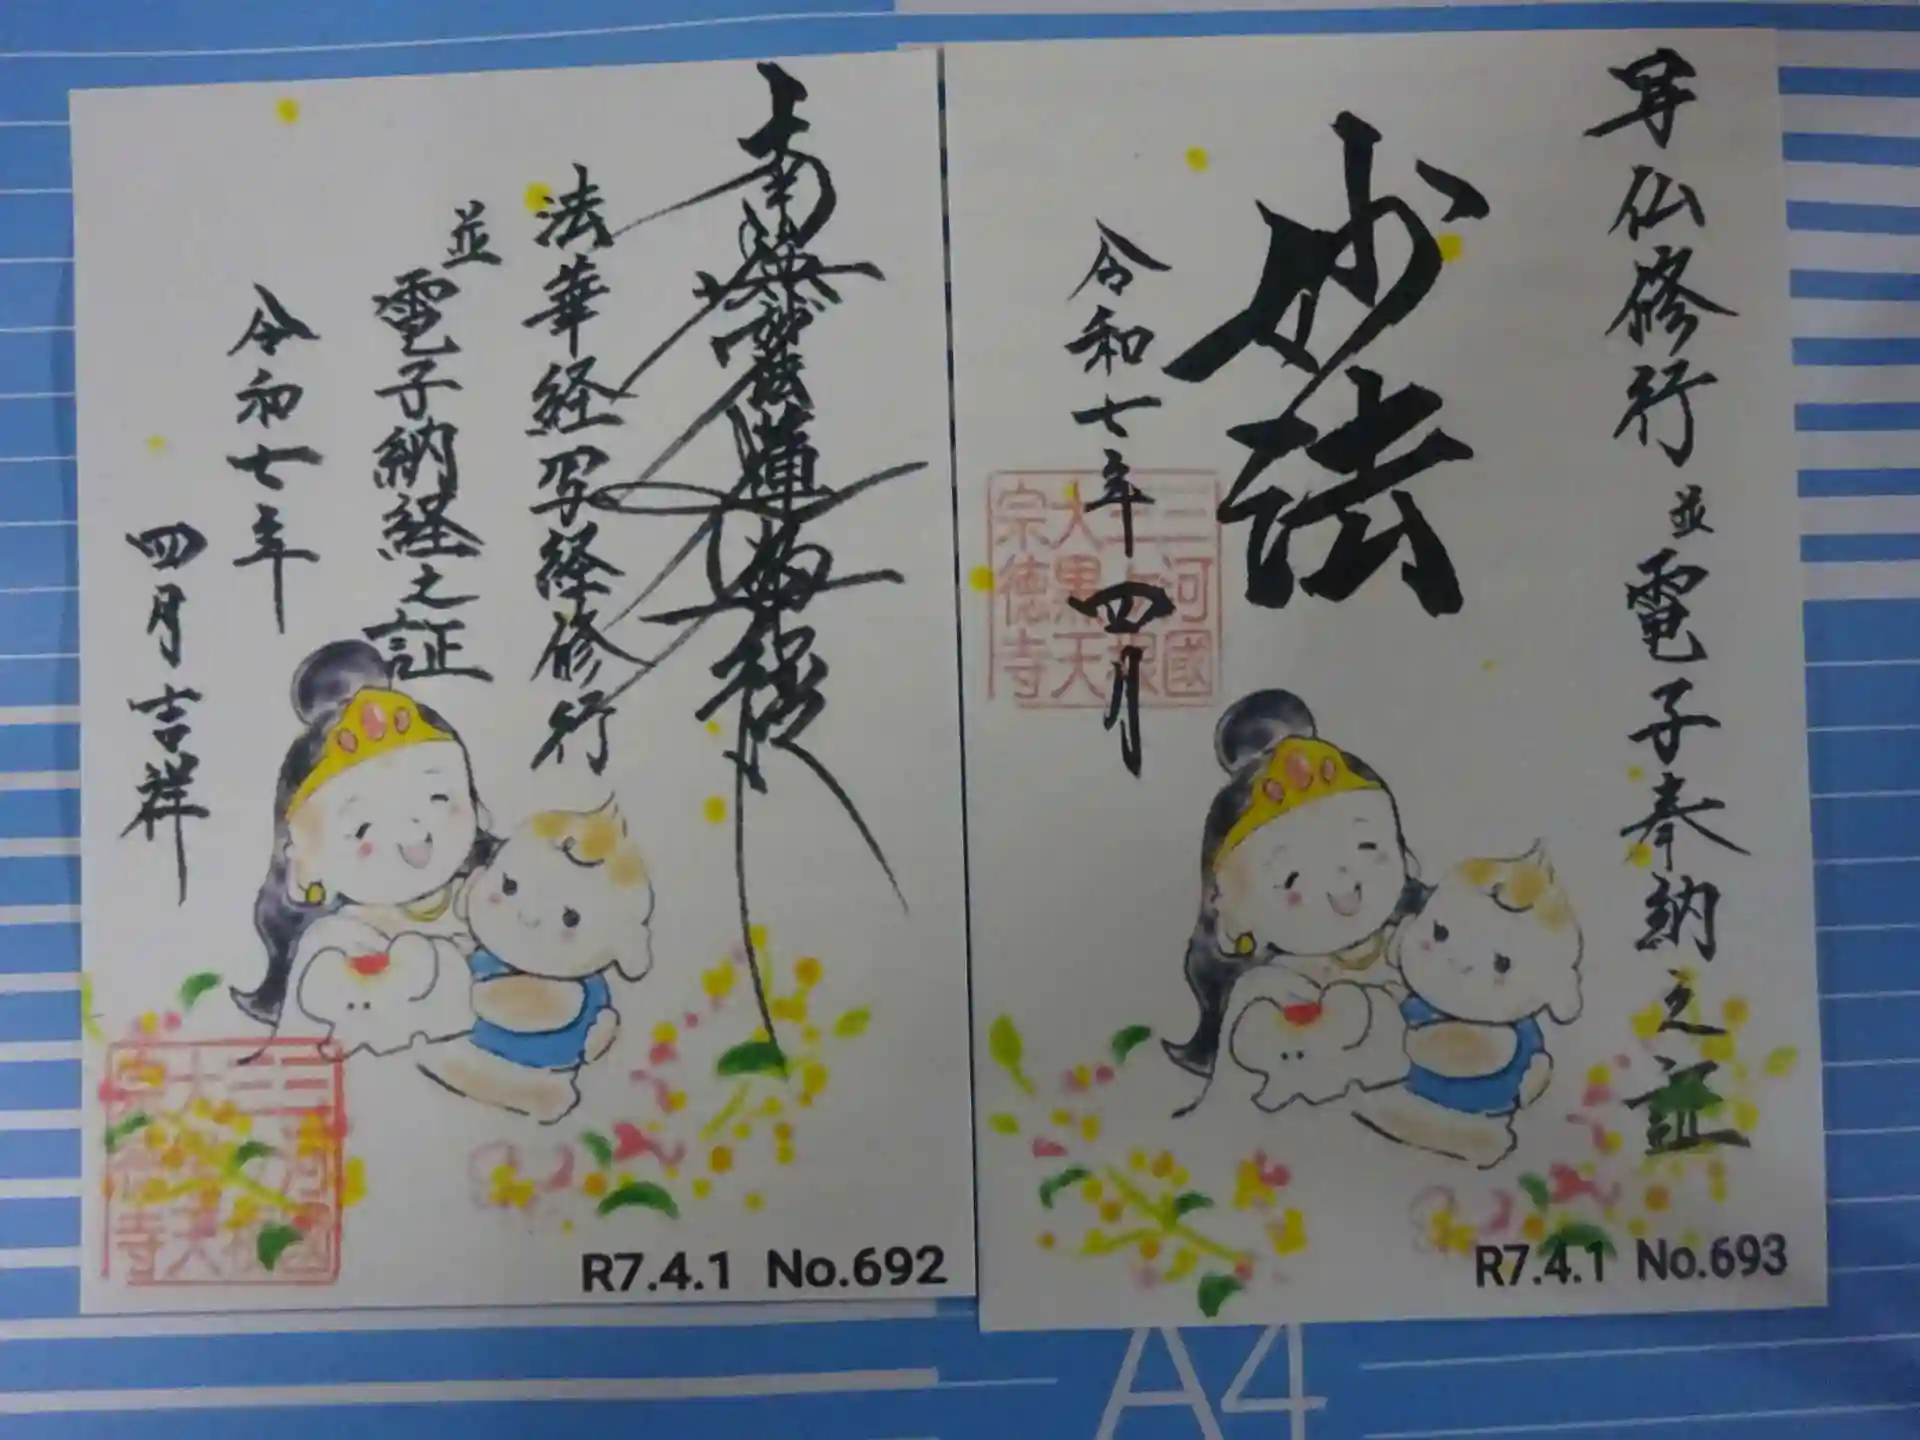 南無妙法蓮華経
法華経写経修行
並電子納経之証
令和七年
四月吉祥
三河國
三ヶ根
大黒天
宗徳寺
R7.4.1 No.692
写仏修行並電子奉納之証
妙法
令和七年四月
三河國
三ヶ根
大黒天
宗徳寺
R7.4.1 No.693
A4